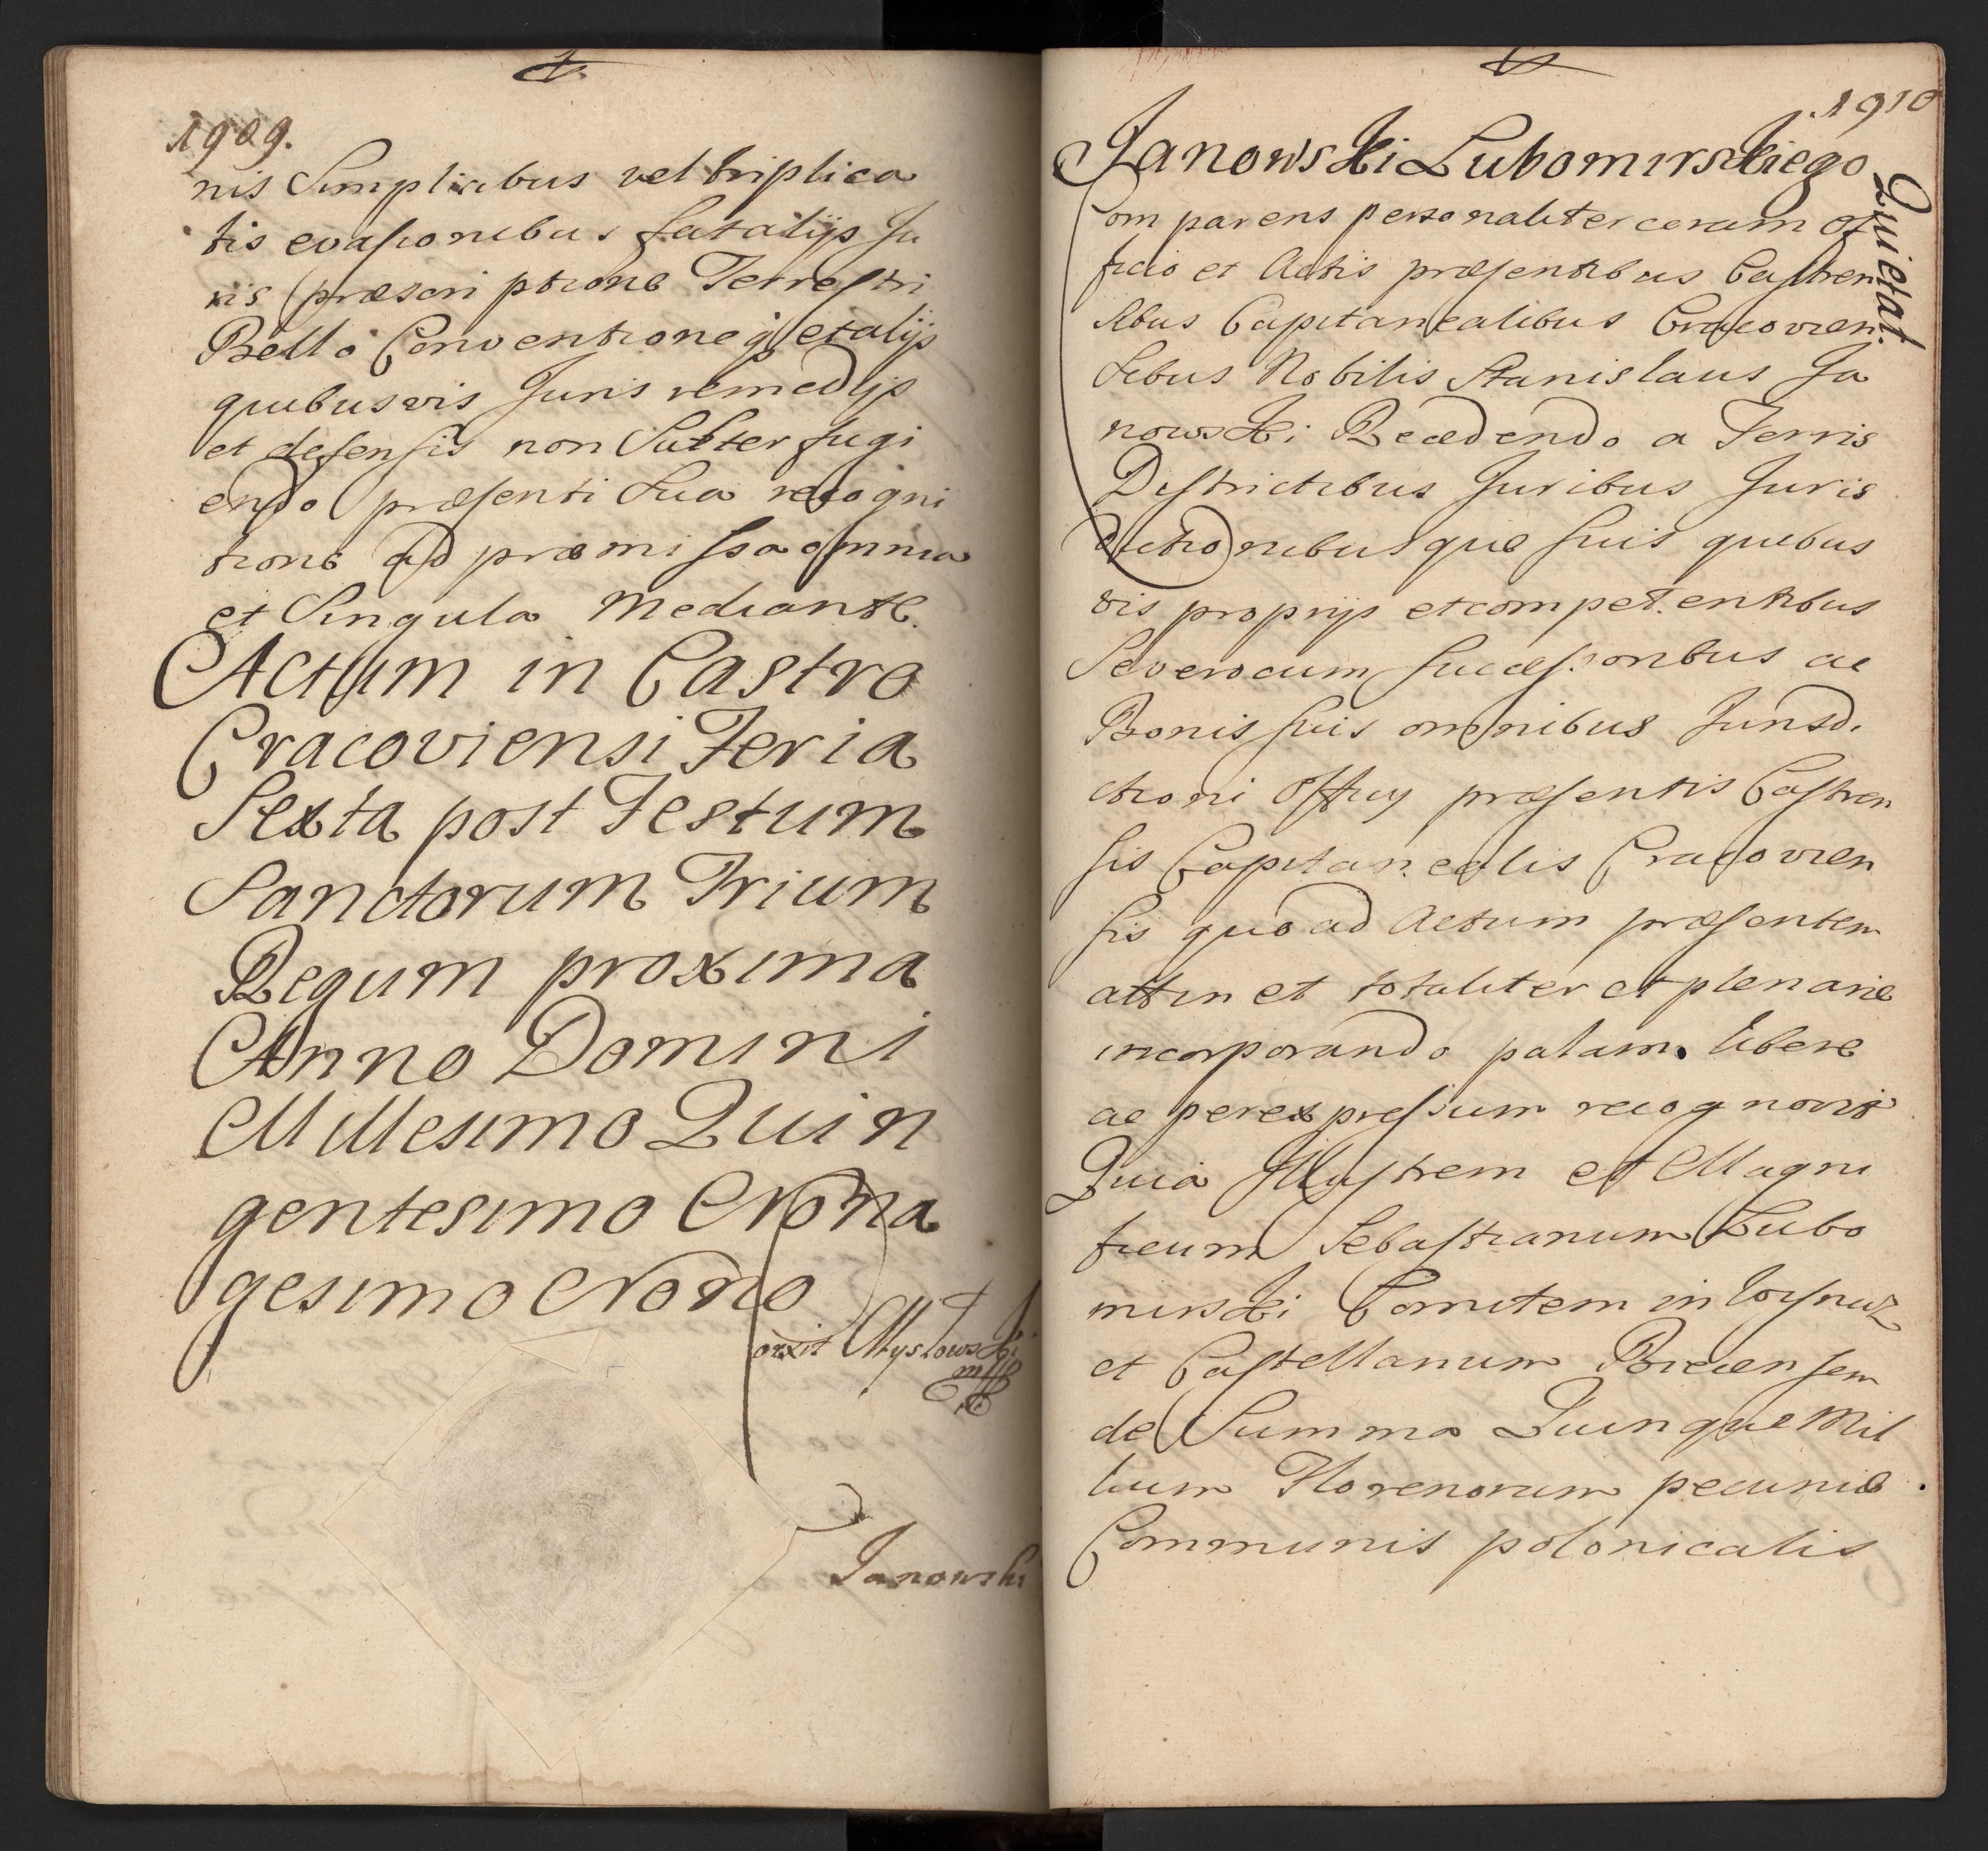 1909.
nis Simplicibus vel triplica
tis evasionibus fatalijs Ju
ris præscriptione Terrestri
Bello Conventioneq̃ et alijs
quibusvis Juris remedijs
et defensis non Subterfugi
endo præsenti Sua recogni
tione ad præmissa omnia
et Singula Mediante.
Actum in Castro
Cracoviensi Feria
Sexta post Festum
Sanctorum Trium
Regum proxima
Anno Domini
Millesimo Quin
gentesimo Nona
gesimo Nono
Janowski
1910
Janowski Lubomirskiego
Quietat.
Comparens personaliter coram Of
ficio et Actis præsentibus Castren
sibus Capitanealibus Cracovien
sibus Nobilis Stanislaus Ja
nowski Recedendo a Terris
Districtibus Juribus Juris
dictionibusque suis quibus
vis proprijs et competentibus
Severo cum successoribus ac
Bonis suis omnibus Jurisdi
ctioni Officij præsentis Castren
sis Capitanealis Cracovien
sis quo ad Actum præsentem
attinet totaliter et plenarie
incorporando palam libere
ac per expressum recognovit
Quia Illustrem et Magni
ficum Sebastianum Lubo
mirski Comitem in Wisnicz
et Castellanum Biecensem
de Summa Quinque Mil
lium Florenorum pecuniæ
Communis polonicalis